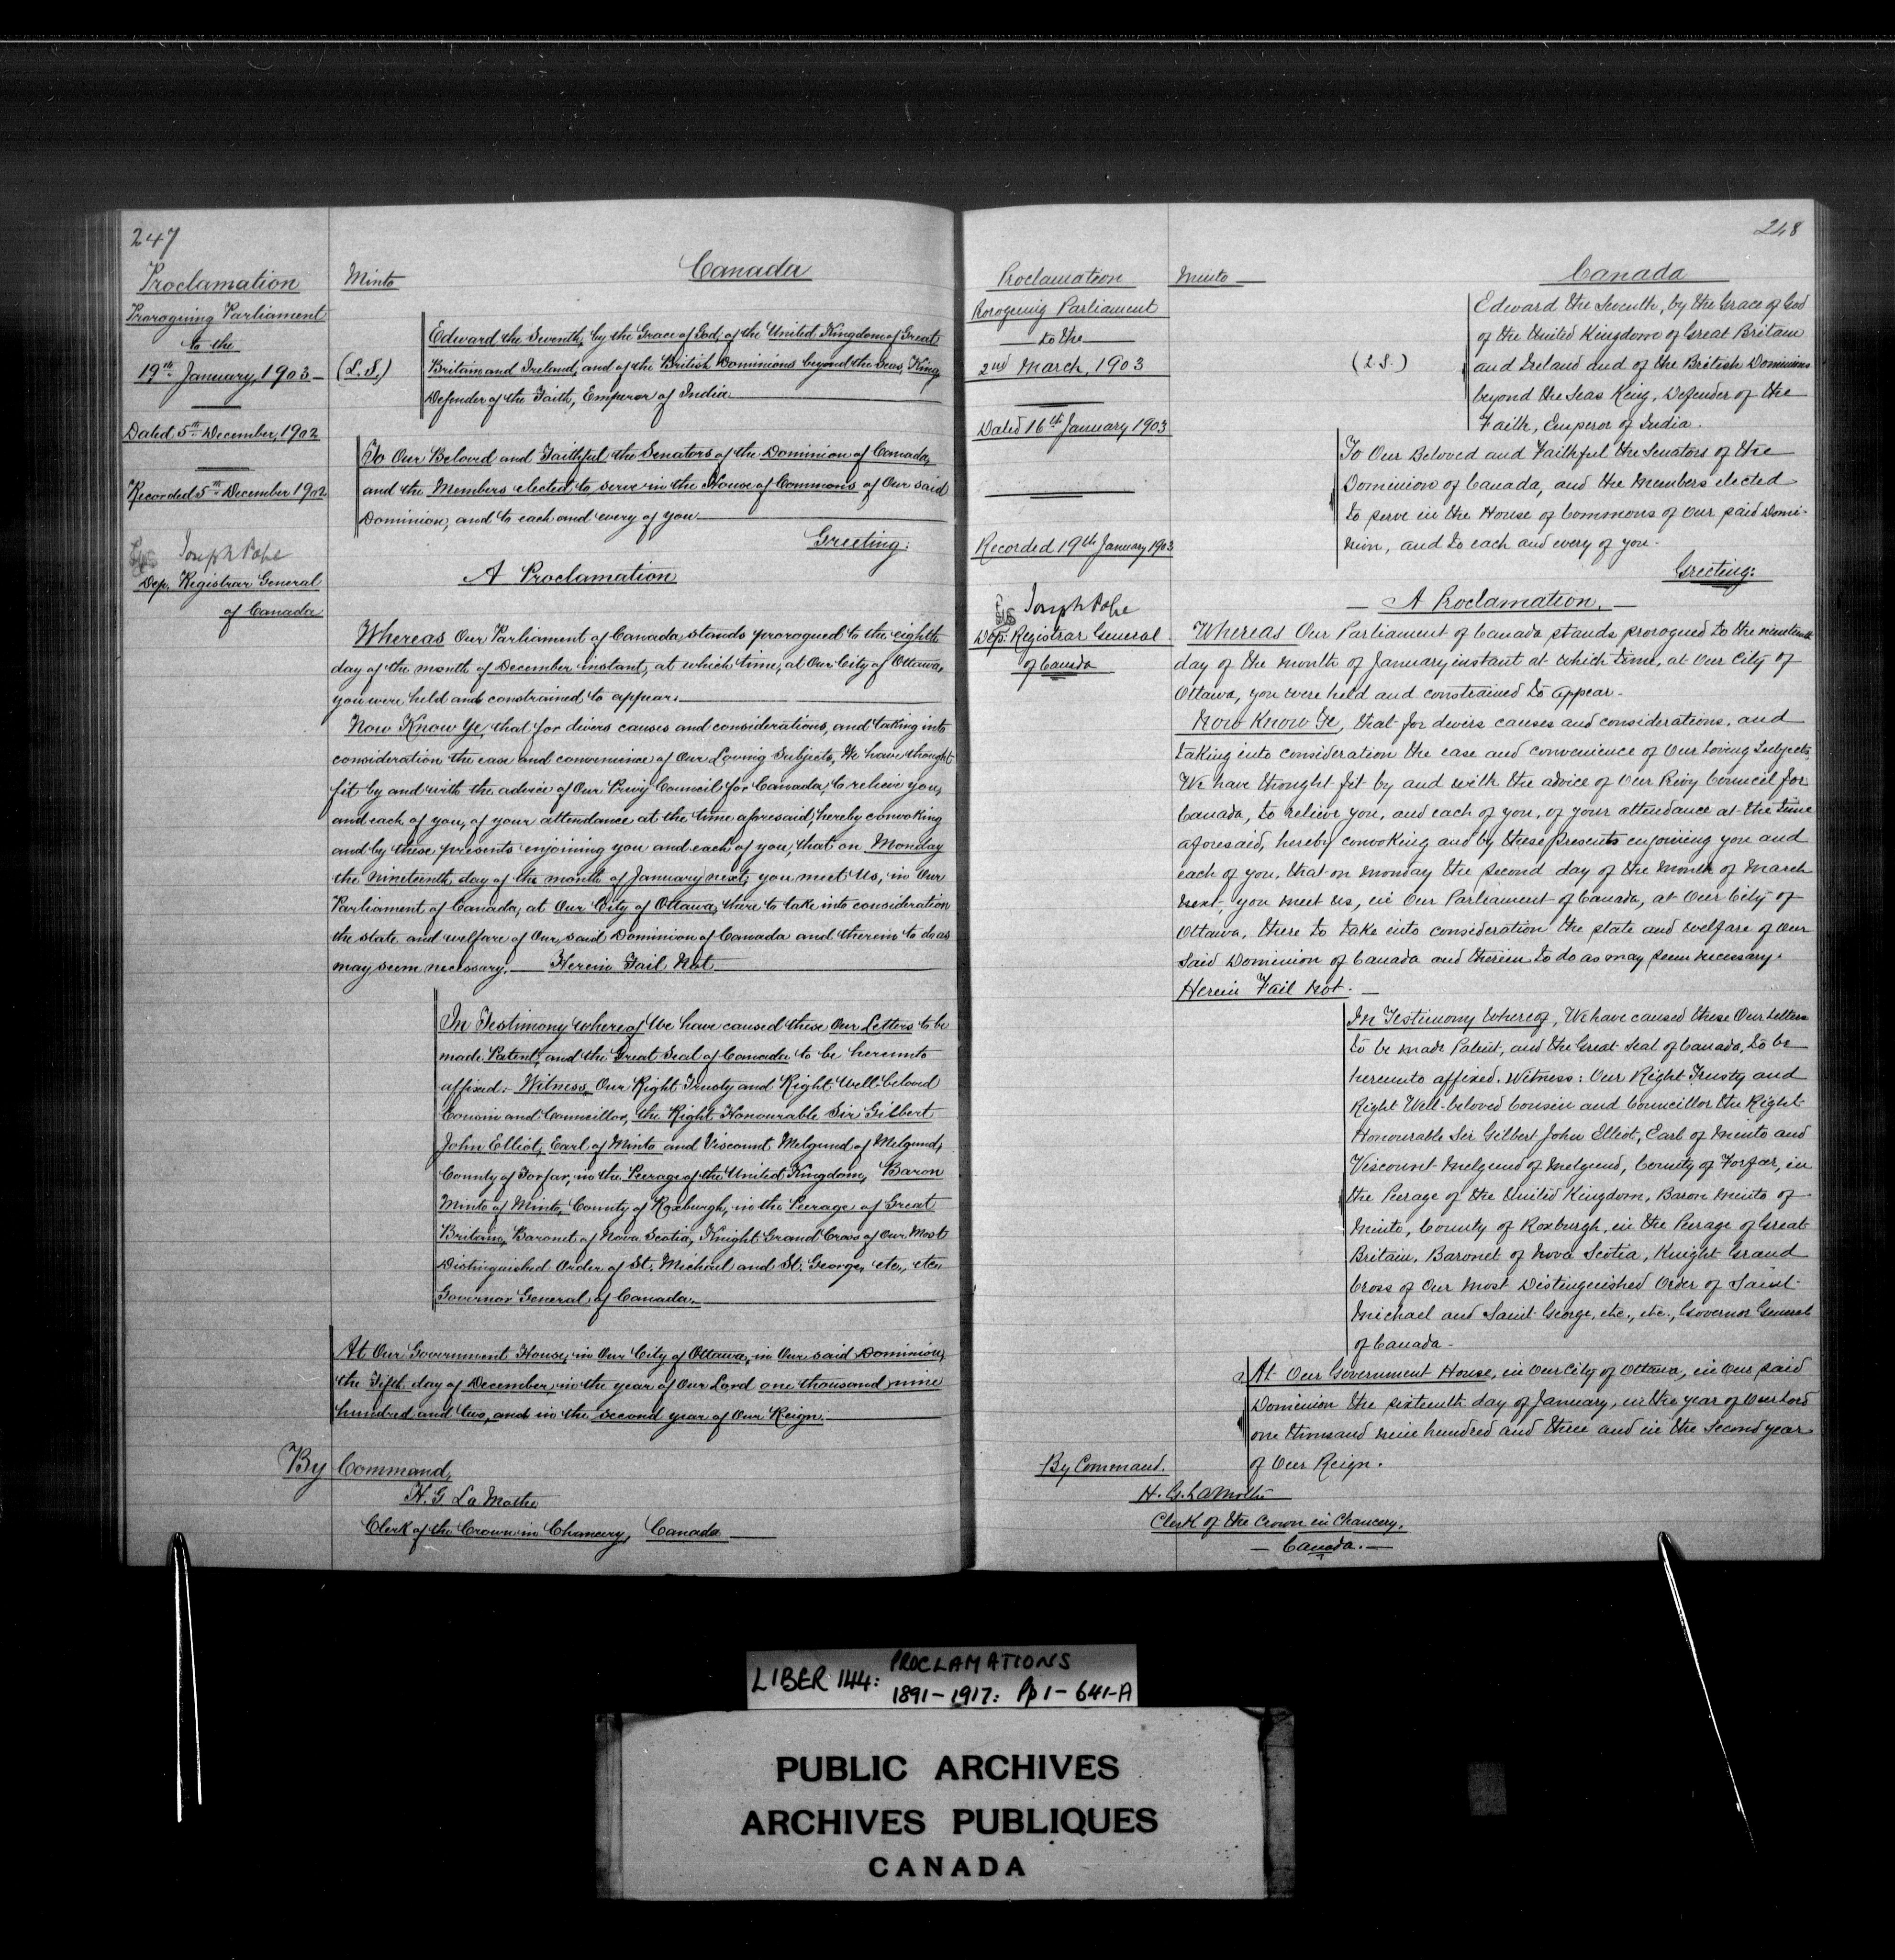 247
Proclamation
Proroguing Parliament
to the
19th January, 1903
Dated 5th December, 1902
Recorded 5th December 1902
Joseph Pope
Dep. Registrar General
of Canada
Minto
Canada
(L.S.)
Edward the Seventh, by the Grace of God, of the United Kingdom of Great
Britain and Ireland, and of the British Dominions beyond the Seas, King,
Defender of the Faith, Emperor of India
To Our Beloved and Faithful the Senators of the Dominion of Canada,
and the Members elected to serve in the House of Commons of Our said
Dominion, and to each and every of you
Greeting:
A Proclamation
Whereas Our Parliament of Canada stands prorogued to the eighth
day of the month of December instant, at which time, at Our City of Ottawa,
you were held and constrained to appear.
Now Know Ye, that for divers causes and considerations, and taking into
consideration the ease and convenience of Our Loving Subjects, We have thought
fit by and with the advice of Our Privy Council for Canada, to relieve you,
and each of you, of your attendance at the time aforesaid, hereby convoking
and by these presents enjoining you and each of you, that on Monday
the nineteenth day of the month of January next, you meet Us, in Our
Parliament of Canada, at Our City of Ottawa, there to take into consideration
the state and welfare of Our said Dominion of Canada and therein to do as
may seem necessary. Herein Fail Not
In Testimony whereof We have caused these Our Letters to be
made Patent, and the Great Seal of Canada to be hereunto
affixed: Witness, Our Right Trusty and Right Well-beloved
Cousin and Councillor, the Right Honourable Sir Gilbert
John Elliot, Earl of Minto and Viscount Melgund of Melgund,
County of Forfar, in the Peerage of the United Kingdom, Baron
Minto of Minto, County of Roxburgh, in the Peerage of Great
Britain, Baronet of Nova Scotia, Knight Grand Cross of Our Most
Distinguished Order of St. Michael and St. George, etc., etc.
Governor General of Canada.
At Our Government House, in Our City of Ottawa, in Our said Dominion,
the Fifth day of December, in the year of Our Lord one thousand nine
hundred and two, and in the second year of Our Reign.
By Command,
H. G La Mothe
Clerk of the Crown in Chancery, Canada
248
Proclamation
Proroguing Parliament
to the
2nd March, 1903
Dated 16th January 1903
Recorded 19th January 1903
Joseph Pope
Dep. Registrar General
of Canada
Minto
Canada
(L.S.)
Edward the Seventh, by the Grace of God
of the United Kingdom of Great Britain
and Ireland and of the British Dominions
beyond the Seas King, Defender of the
Faith, Emperor of India.
To Our Beloved and Faithful the Senators of the
Dominion of Canada, and the Members elected
to serve in the House of Commons of Our said Domi-
nion, and to each and every of you.
Greeting:
A Proclamation.
Whereas Our Parliament of Canada stands prorogued to the nineteenth
day of the month of January instant at which time, at Our City of
Ottawa, you were held and constrained to appear.
Now Know Ye, that for divers causes and considerations, and
taking into consideration the ease and convenience of Our Loving Subjects,
We have thought fit by and with the advice of Our Privy Council for
Canada, to relieve you, and each of you, of your attendance at the time
aforesaid, hereby convoking and by these presents enjoining you and
each of you, that on Monday the second day of the month of March
next, you meet Us, in Our Parliament of Canada, at Our City of
Ottawa, there to take into consideration the state and welfare of Our
said Dominion of Canada and therein to do as may seem necessary.
Herein Fail Not.
In Testimony Whereof, We have caused these Our Letters
to be made Patent, and the Great Seal of Canada, to be
hereunto affixed. Witness: Our Right Trusty and
Right Well-beloved Cousin and Councillor the Right
Honourable Sir Gilbert John Elliot, Earl of Minto and
Viscount Melgund of Melgund, County of Forfar, in
the Peerage of the United Kingdom, Baron Minto of
Minto, County of Roxburgh, in the Peerage of Great
Britain, Baronet of Nova Scotia, Knight Grand
Cross of Our Most Distinguished Order of Saint
Michael and Saint George, etc., etc., Governor General
of Canada.
At Our Government House, in Our City of Ottawa, in Our said
Dominion the sixteenth day of January, in the year of Our Lord
one thousand nine hundred and three and in the Second year
of Our Reign.
By Command.
H. G. LaMothe
Clerk of the Crown in Chancery.
Canada.
LIBER 144: PROCLAMATIONS
1891-1917: Pp 1-641-A
PUBLIC ARCHIVES
ARCHIVES PUBLIQUES
CANADA